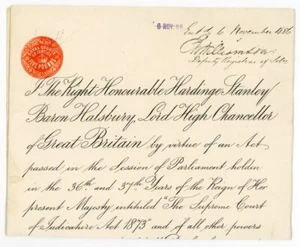 6 NOV.
Ent'd 6 November 1886
Deputy Registrar of
I The Right Honourable Hardinge Stanley
Baron Halsbury, Lord High Chancellor
of Great Britain by virtue of an Act
passed in the Session of Parliament holden
in the 36th and 37th Years of the Reign of Her
present Majesty intituled "The Supreme Court
of Judicature Act 1873" and of all other powers